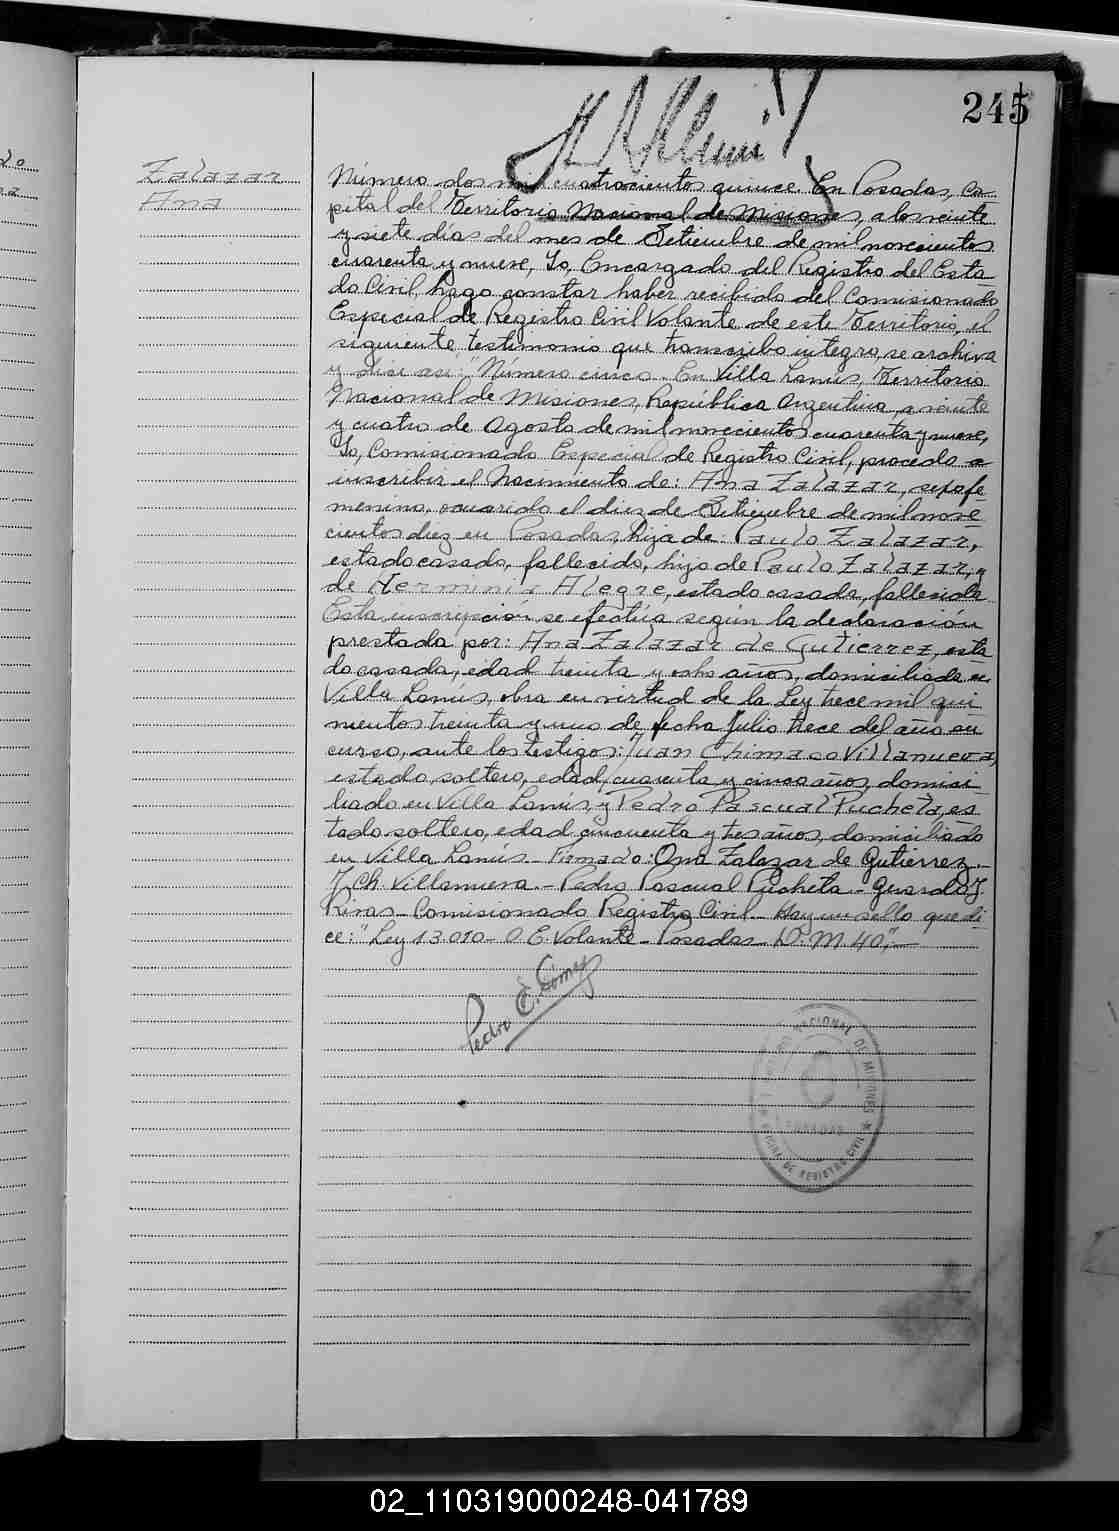 245
Zalazar
Ana
Número dos mil cuatrocientos quince En Posadas, ca-
pital del Territorio Nacional de Misiones, a los veinte
y siete días del mes de Setiembre de mil novecientos
cuarenta y nueve, Yo, Encargado del Registro del Esta-
do Civil, hago constar haber recibido del Comisionado
Especial de Registro Civil Volante de este Territorio, el
siguiente testimonio que transcribo integro, se archiva
y dice así: "Número cinco. En Villa Lanús, Territorio
Nacional de Misiones, República Argentina, a veinte
y cuatro de Agosto de mil novecientos cuarenta y nueve,
Yo, Comisionado Especial de Registro Civil, procedo a
inscribir el Nacimiento de: Ana Zalazar, sexo fe-
menino, ocurrido el diez de Setiembre de mil nove-
cientos diez en Posadas, hija de: Paulo Zalazar,
estado casado, fallecido, hijo de Paulo Zalazar, y
de Herminia Alegre, estado casada, fallecida
Esta inscripción se efectúa según la declaración
prestada por: Ana Zalazar de Gutierrez, esta-
do casada, edad treinta y ocho años, domiciliada en
Villa Lanús, obra en virtud de la Ley trece mil qui-
nientos treinta y uno de fecha Julio trece del año en
curso, ante los testigos: Juan Chimaco Villanueva,
estado soltero, edad cuarenta y cinco años, domici-
liado en Villa Lanús, y Pedro Pascual Pucheta, es-
tado soltero, edad cincuenta y tres años, domiciliado
en Villa Lanús. - Firmado: Ana Zalazar de Gutierrez. -
J. Ch. Villanueva. - Pedro Pascual Pucheta. - Gerardo J.
Rivas - Comisionado Registro Civil. - Hay un sello que di-
ce: "Ley 13.010 - O.E. Volante - Posadas - D. M. 40",-
Pedro E. Gómez
NACIONAL DE MISIONES
POSADAS
OFICINA DE REGISTRO CIVIL
02_110319000248-041789